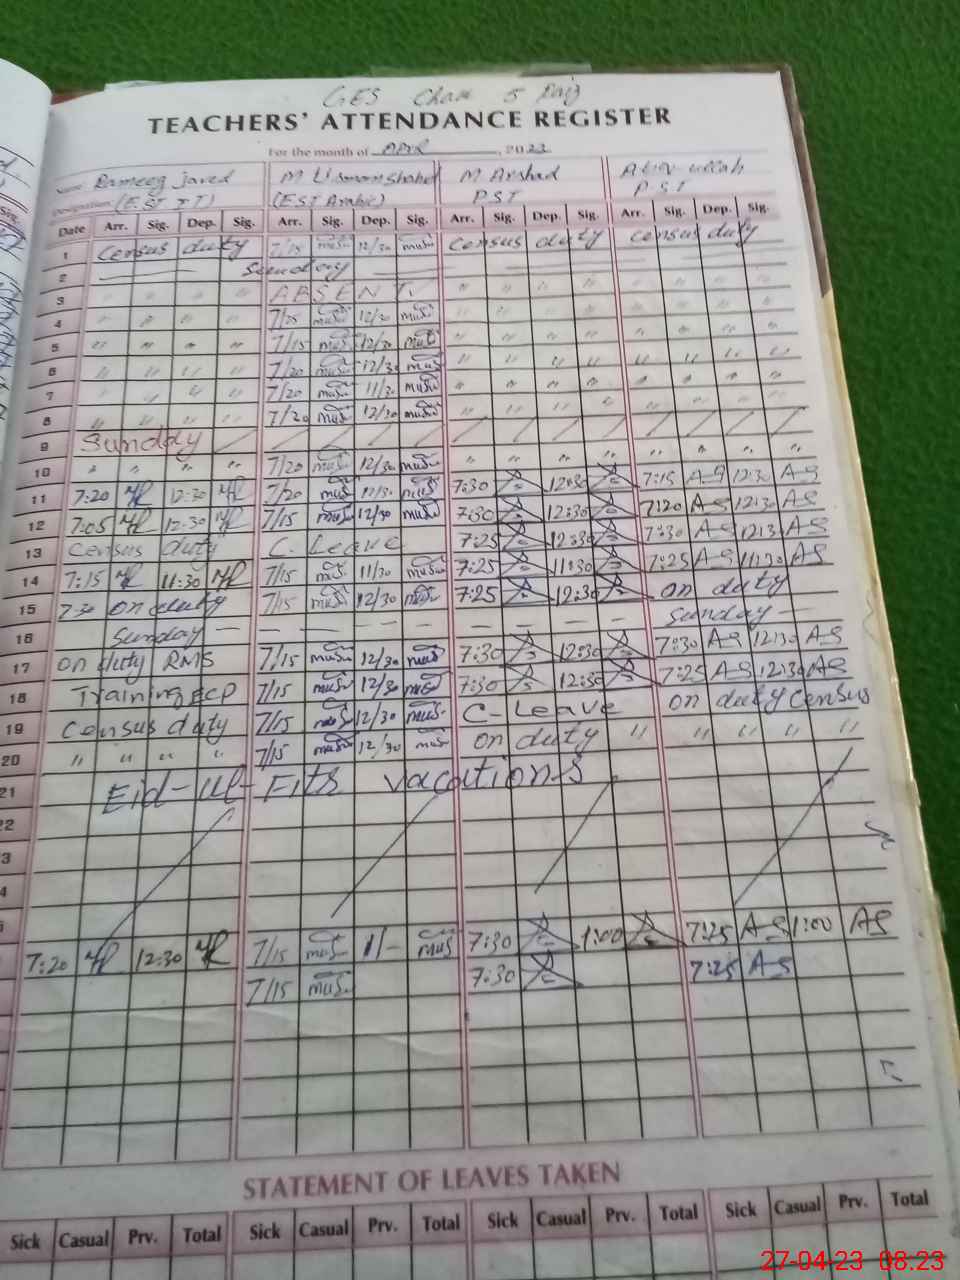 GES Chak 5 Faiz
TEACHERS' ATTENDANCE REGISTER
For the month of April, 2023
Name: Javed M Usman Shahid M Arshad Atiq ullah
Designation: (EST Arabic) PST P.S.T
Date Arr. Sig. Dep. Sig. Arr. Sig. Dep. Sig. Arr. Sig. Dep. Sig. Arr. Sig. Dep. Sig.
1 Census duty 7/15 12/30 Census duty census duty
2 Sunday
3 " " " " ABSENT " " " " " " " "
4 " " " " 7/25 12/30 " " " " " " " "
5 " " " " 7/15 12/30 " " " " " " " "
6 " " " " 7/20 12/30 " " " " " " " "
7 " " " " 7/20 11/30 " " " " " " " "
8 " " " " 7/20 12/30 " " " " " " " "
9 Sunday
10 " " " " 7/20 12/30 " " " " " " " "
11 7:20 12:30 7/20 12/30 7:30 12:30 7:15 AS 12:30 AS
12 7:05 12:30 7/15 12/30 7:30 12:30 7:20 AS 12:30 AS
13 Census duty C. Leave 7:25 12:30 7:30 AS 12:30 AS
14 7:15 11:30 7/15 11/30 7:25 11:30 7:25 AS 11:30 AS
15 7:30 on duty 7/15 12/30 7:25 12:30 on duty
16 Sunday — — — — — — — — sunday —
17 on duty RMS 7/15 12/30 7:30 12:30 7:30 AS 12:30 AS
18 Training ECP 7/15 12/30 7:30 12:30 7:25 AS 12:30 AS
19 Census duty 7/15 12/30 C-Leave on duty Census
20 " " " " 7/15 12/30 on duty " " " " "
21 Eid-ul-Fitr vacations
22
3
4
7:20 12:30 7/15 1/- 7:30 1:00 7:25 AS 1:00 AS
7/15 7:30 7:25 AS
STATEMENT OF LEAVES TAKEN
Sick Casual Prv. Total Sick Casual Prv. Total Sick Casual Prv. Total Sick Casual Prv. Total
27-04-23 08:23